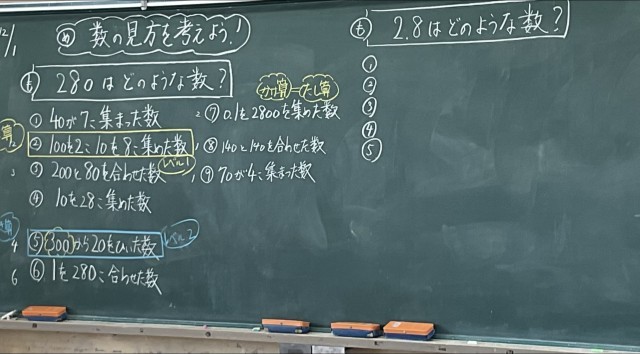 12/1
め 数の見方を考えよう!
も 280はどのような数?
① 40が7こ集まった数
② 100を2こ10を8こ集めた数
レベル1
③ 200と80を合わせた数
④ 10を28こ集めた数
⑤ 300から20をひいた数
レベル2
⑥ 1を280こ合わせた数
かけ算=たし算
⑦ 0.1を2800を集めた数
⑧ 140と140を合わせた数
⑨ 70が4こ集まった数
も 2.8はどのような数?
①
②
③
④
⑤